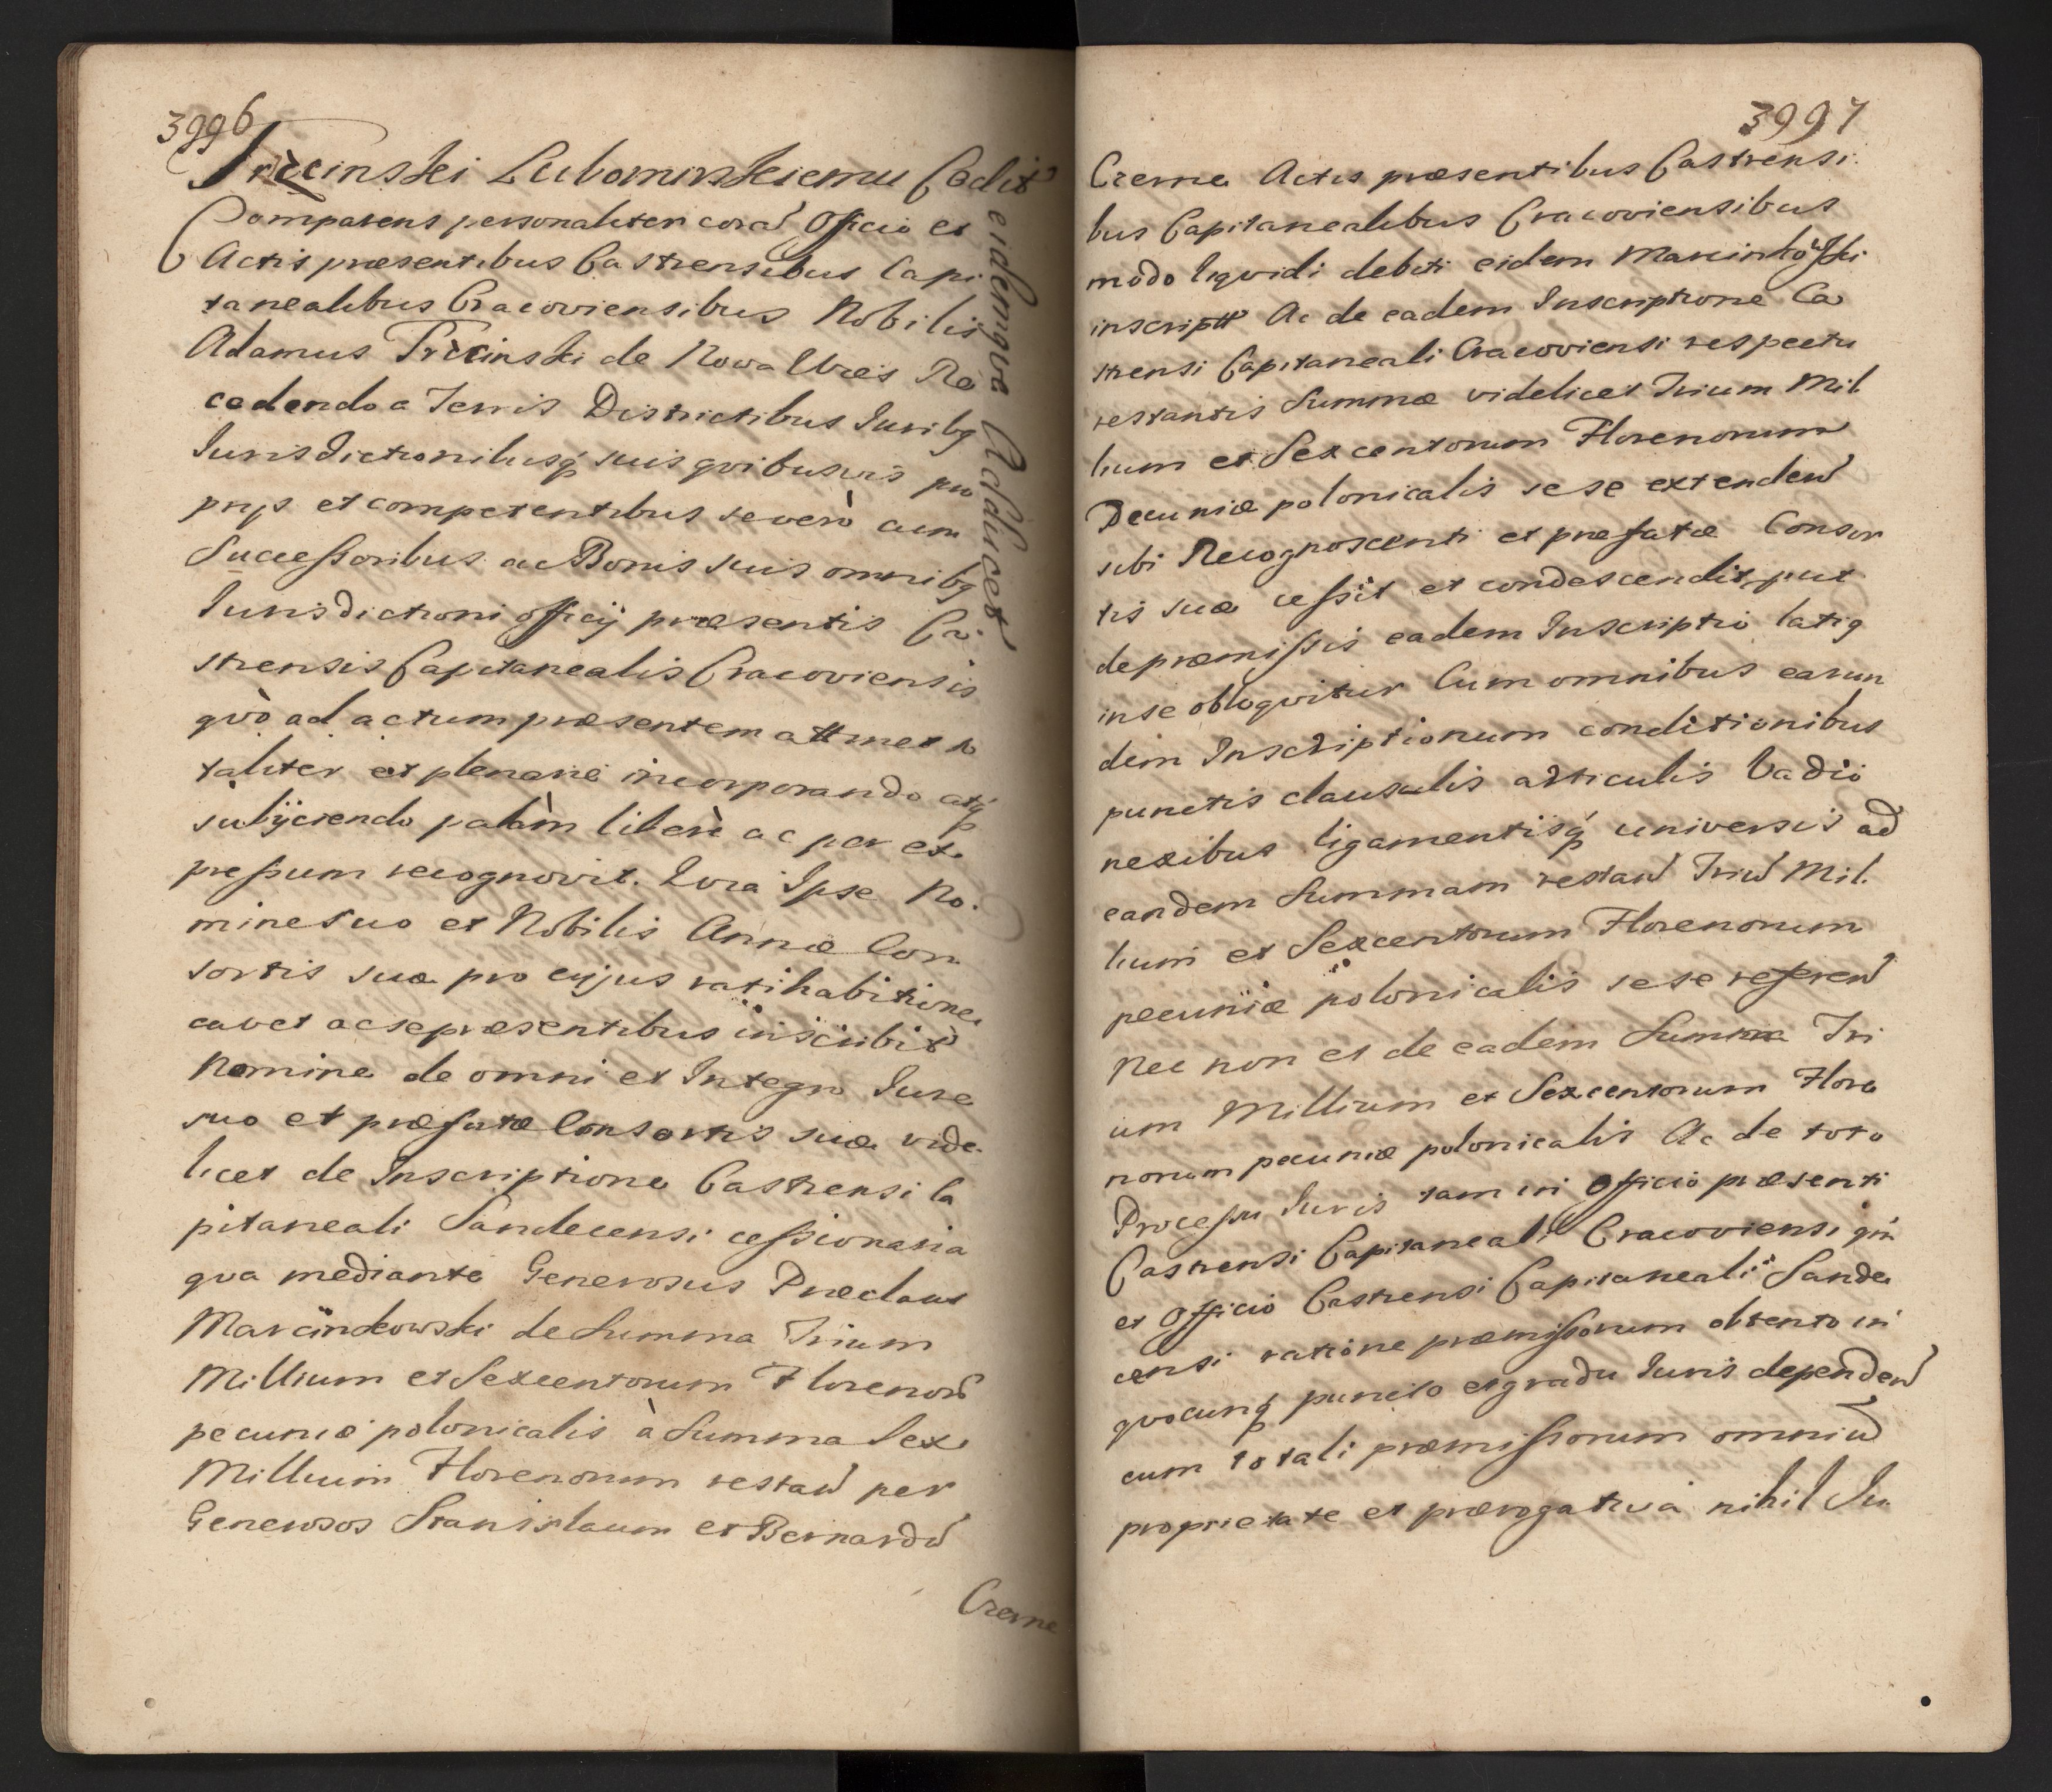 3996
Trzcinski Lubominskiemu Cedit
Comparens personaliter corã Officio et
Actis præsentibus Castrensibus Capi
tanealibus Cracoviensibus Nobilis
Adamus Trzcinski de Nowa Wies Re
cedendo a Terris Districtibus Juribq
Jurisdictionibusq suis qvibusvis pro
prijs et competentibus severò cum
Successoribus ac Bonis suis omnibq
Jurisdictioni officij præsentis Ca
strensis Capitanealis Cracoviensis
qvò ad actum præsentem attinet to
taliter et plenarie incorporando atq
subijciendo palàm liberè ac per ex
pressum recognovit. Qvia Ipse No.
mine suo et Nobilis Annæ Con
sortis suæ pro cujus ratihabitione
cavet ac se præsentibus inscribit
Nomine de omni et Integro Jure
suo et præfatæ Consortis suæ vide
licet de Inscriptione Castrensi Ca
pitaneali Sandecensi cessionaria
qva mediante Generosus Præclaus
Marcinkowski de Summa Trium
Millium et Sexcentorum Florenorũ
pecuniæ polonicalis à Summa Sex
Millium Florenorum restañ per
Generosos Stanislaum et Bernardũ
Czerne
eidemqve Addicet
3997
Czerne Actis præsentibus Castrensi
bus Capitanealibus Cracoviensibus
modo liqvidi debiti eidem Marcinkowski
inscriptt Ac de eadem Inscriptione Ca
strensi Capitaneali Cracoviensi respectu
restantis Summæ videlicet Trium Mil
lium et Sexcentorum Florenorum
Pecuniæ polonicalis sese extendeñ
sibi Recognoscenti et præfatæ Consor
tis suæ cessit et condescendit, put
de præmissis eadem Inscriptio latiq
in se obloqvitur Cum omnibus earun
dem Inscriptionum conditionibus
punctis clausulis articulis Vadio
nexibus ligamentisq universis ad
eandem Summam restañ Triũ Mil.
lium et Sexcentorum Florenorum
pecuniæ polonicalis sese refereñ
Nec non et de eadem Summa Tri
um Millium et Sexcentorum Flore
norum pecuniæ polonicalis Ac de toto
Processu Juris tam in Officio præsenti
Castrensi Capitaneali Cracoviensi qm
et Officio Castrensi Capitaneali Sande
censi ratione præmissorum obtento in
qvocunq puncto et gradu Juris dependeñ
cum totali præmissorum omniũ
proprietate et prærogativa nihil Ju